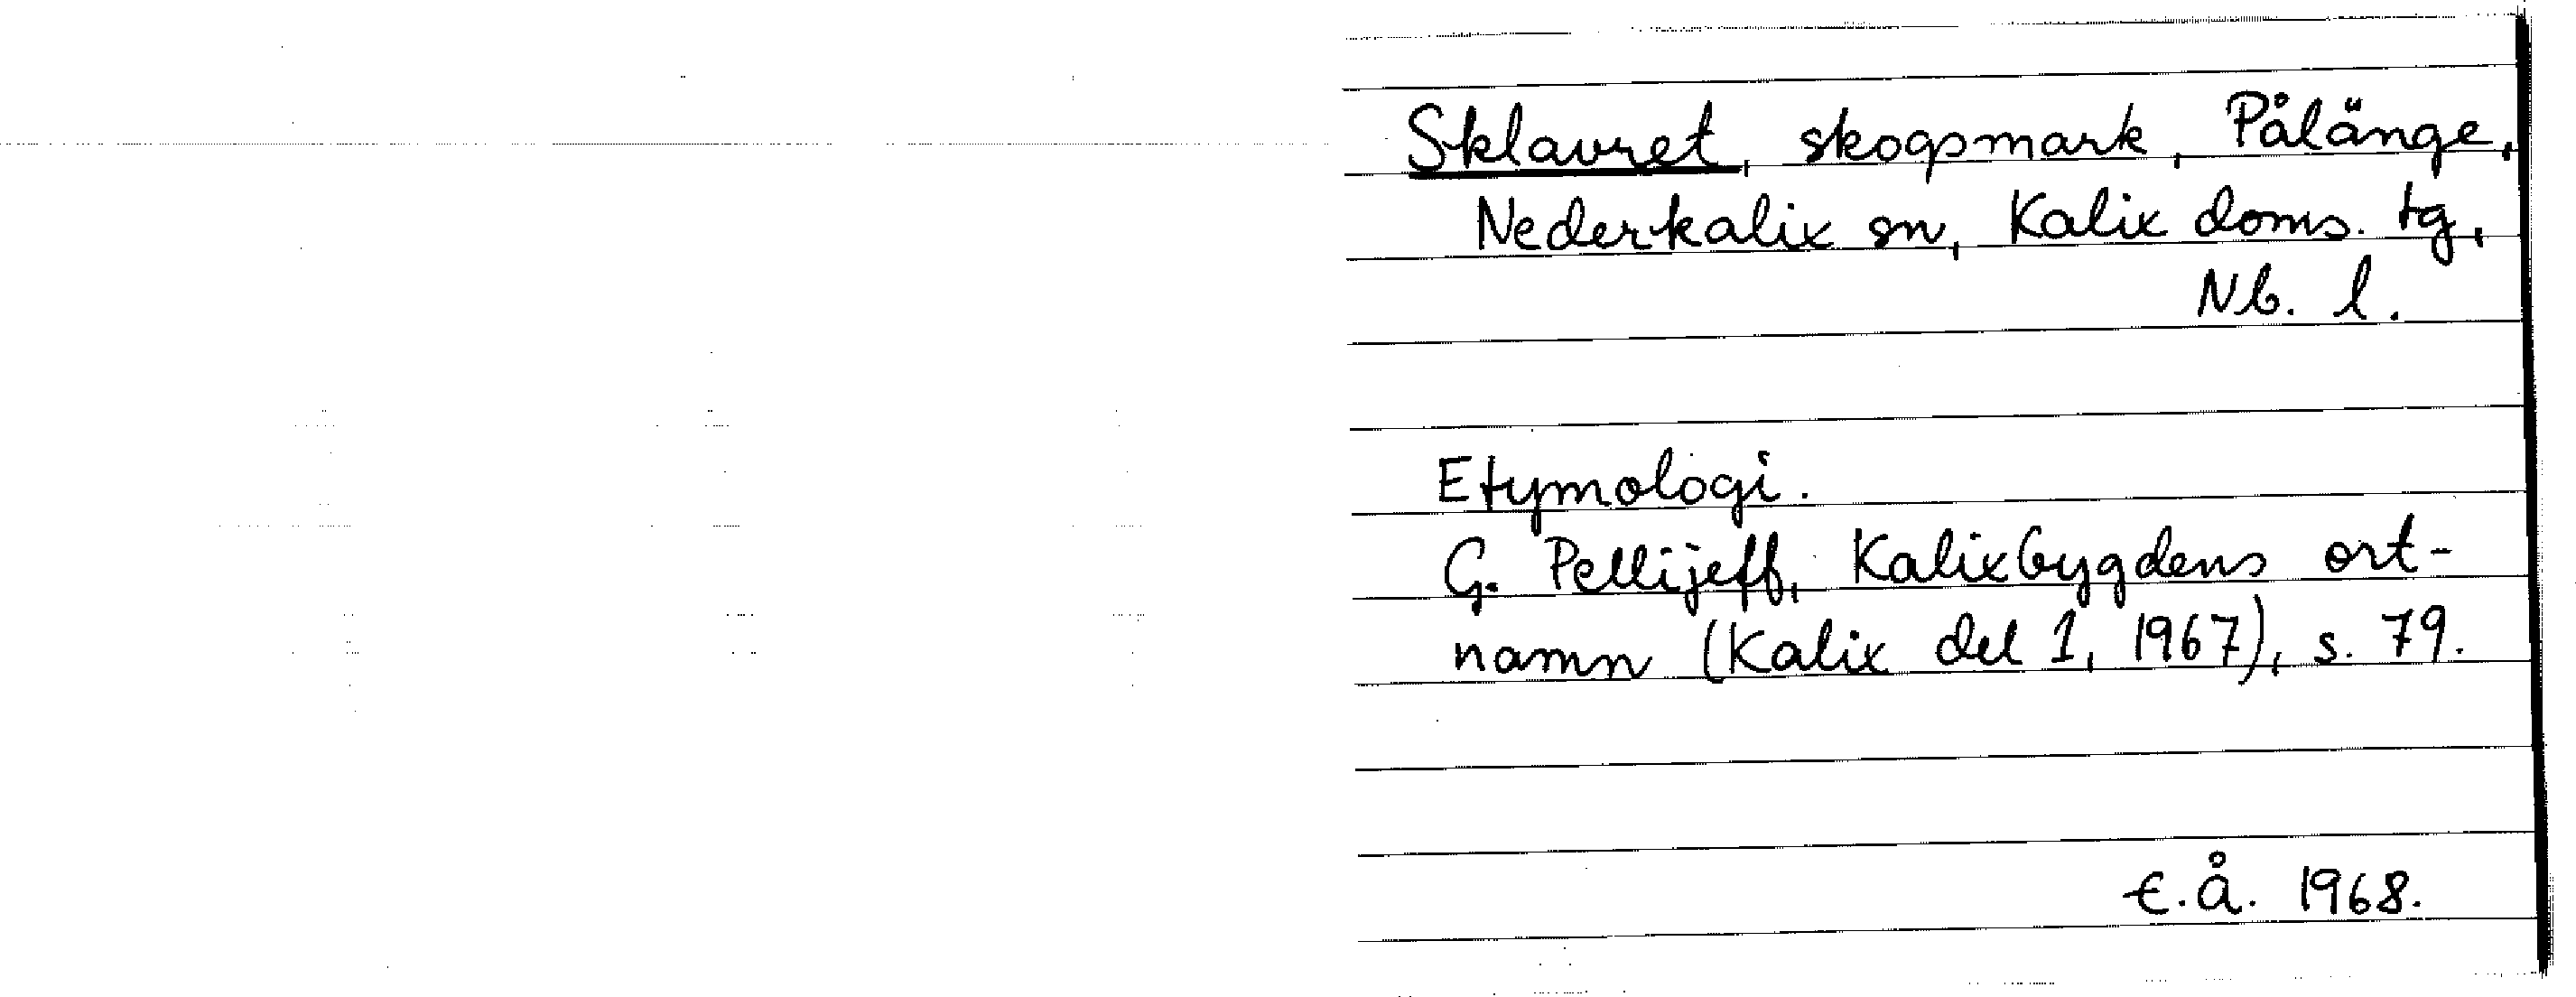 Sklavret, skogsmark, Pålänge,
Nederkalix sn, Kalix doms. tg,
Nb. l.
Etymologi.
G. Pellijeff, Kalixbygdens ort-
namn (Kalix del 1, 1967), s. 79.
E.Å. 1968.